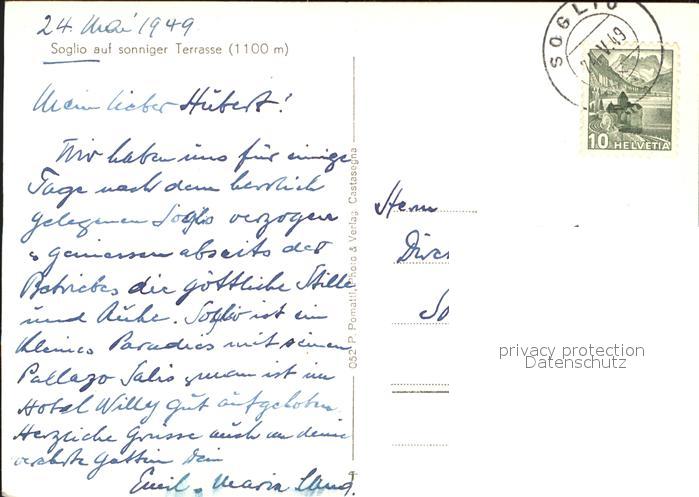 24. Mai 1949
Soglio auf sonniger Terrasse (1100 m)
Mein lieber Hubert!
Wir haben uns für einige
Tage nach dem herrlich
gelegenen Soglio verzogen
& geniessen abseits des
Betriebes die göttliche Stille
und Ruhe. Soglio ist ein
kleines Paradies mit seinem
Pallazo Salis, man ist im
Hotel Willy gut aufgehoben.
Herzliche Grüsse auch an deine
verehrte Gattin Dein
Emil - Maria
052 P. Pomatti, Photo & Verlag, Castasegna
SOGLIO
24.V.49
10 HELVETIA
Herrn
Direc
So
privacy protection
Datenschutz